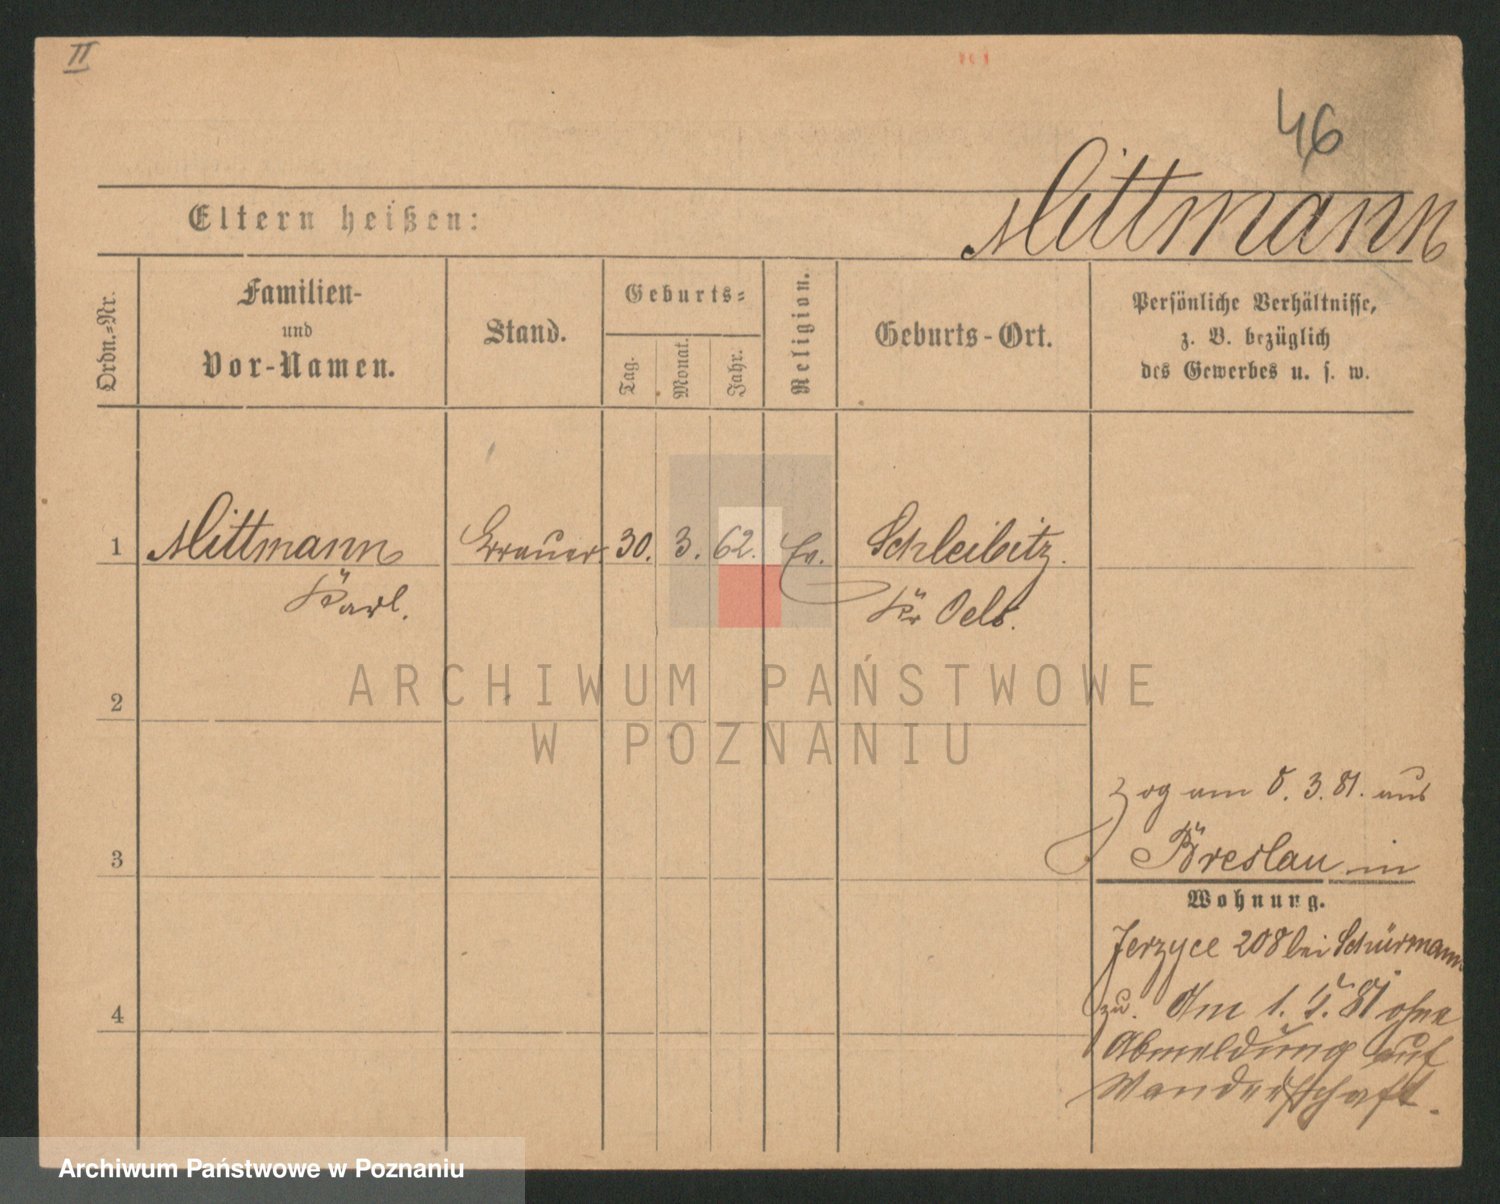 II
46
Mittmann
Eltern heißen:
Ordn.=Nr.
Familien-
und
Vor-Namen.
Stand.
Geburts=
Tag.
Monat.
Jahr.
Religion.
Geburts-Ort.
Persönliche Verhältnisse,
z. B. bezüglich
des Gewerbes u. s. w.
1 Mittmann Brauer. 30. 3. 62. Ev. Schleibitz.
Karl. Kr Oels.
ARCHIWUM PAŃSTWOWE
W POZNANIU
2
zog am 8. 3. 81. aus
3 Breslau in
Wohnung.
Jerzyce 208 bei Schürmann
zu. Am 1. 5. 81 ohne
4 Abmeldung auf
Wanderschaft.
Archiwum Państwowe w Poznaniu